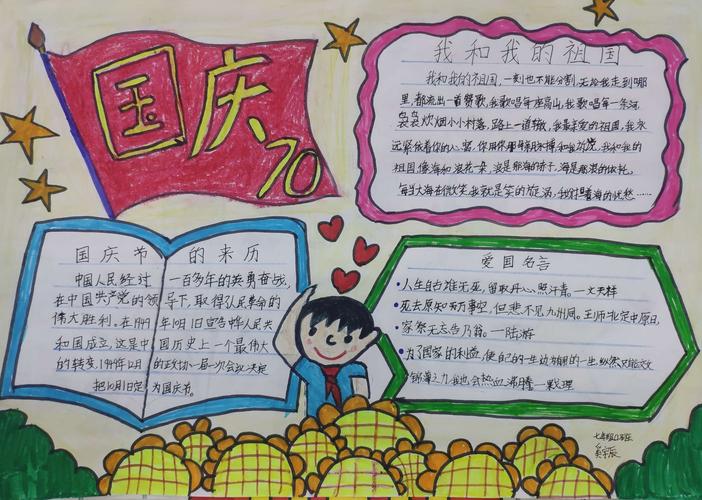 国庆70
我和我的祖国
我和我的祖国，一刻也不能分割，无论我走到哪
里，都流出一首赞歌，我歌唱每座高山，我歌唱每一条河
袅袅炊烟小小村落，路上一道辙，我最亲爱的祖国，我永
远紧依着你的心窝，你用你那母亲的脉搏和我诉说，我和我的
祖国像海和浪花一朵，浪是那海的赤子，海是那浪的依托，
每当大海在微笑我就是笑的旋涡，我分担着海的忧愁……
国庆节的来历
中国人民经过一百多年的英勇奋战，
在中国共产党的领导下，取得了人民革命的
伟大胜利。在1949年10月1日宣告中华人民共
和国成立，这是中国历史上一个最伟大
的转变，1949年12月的政协一届一次会议决定
把10月1日定为国庆节。
爱国名言
人生自古谁无死，留取丹心照汗青。一文天祥
死去原知万事空，但悲不见九州同。王师北定中原日，
家祭无忘告乃翁。一陆游
为了国家的利益，使自己的一生